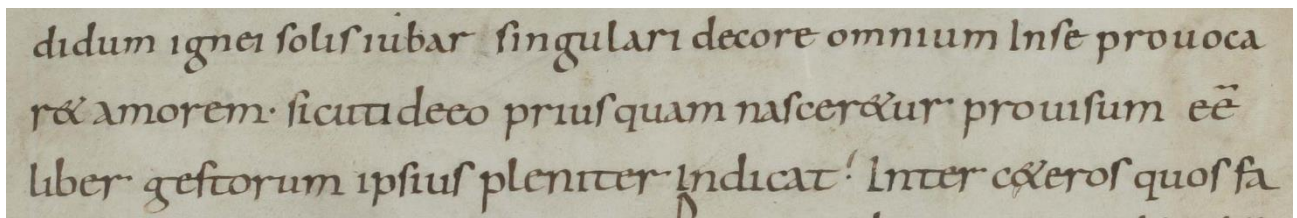 didum ignei solis iubar singulari decore omnium Inse prouoca
r& amorem· sicuti deeo priusquam nascer&ur· prouisum eē
liber gestorum ipsius pleniter Indicat! Inter c&eros quos fa